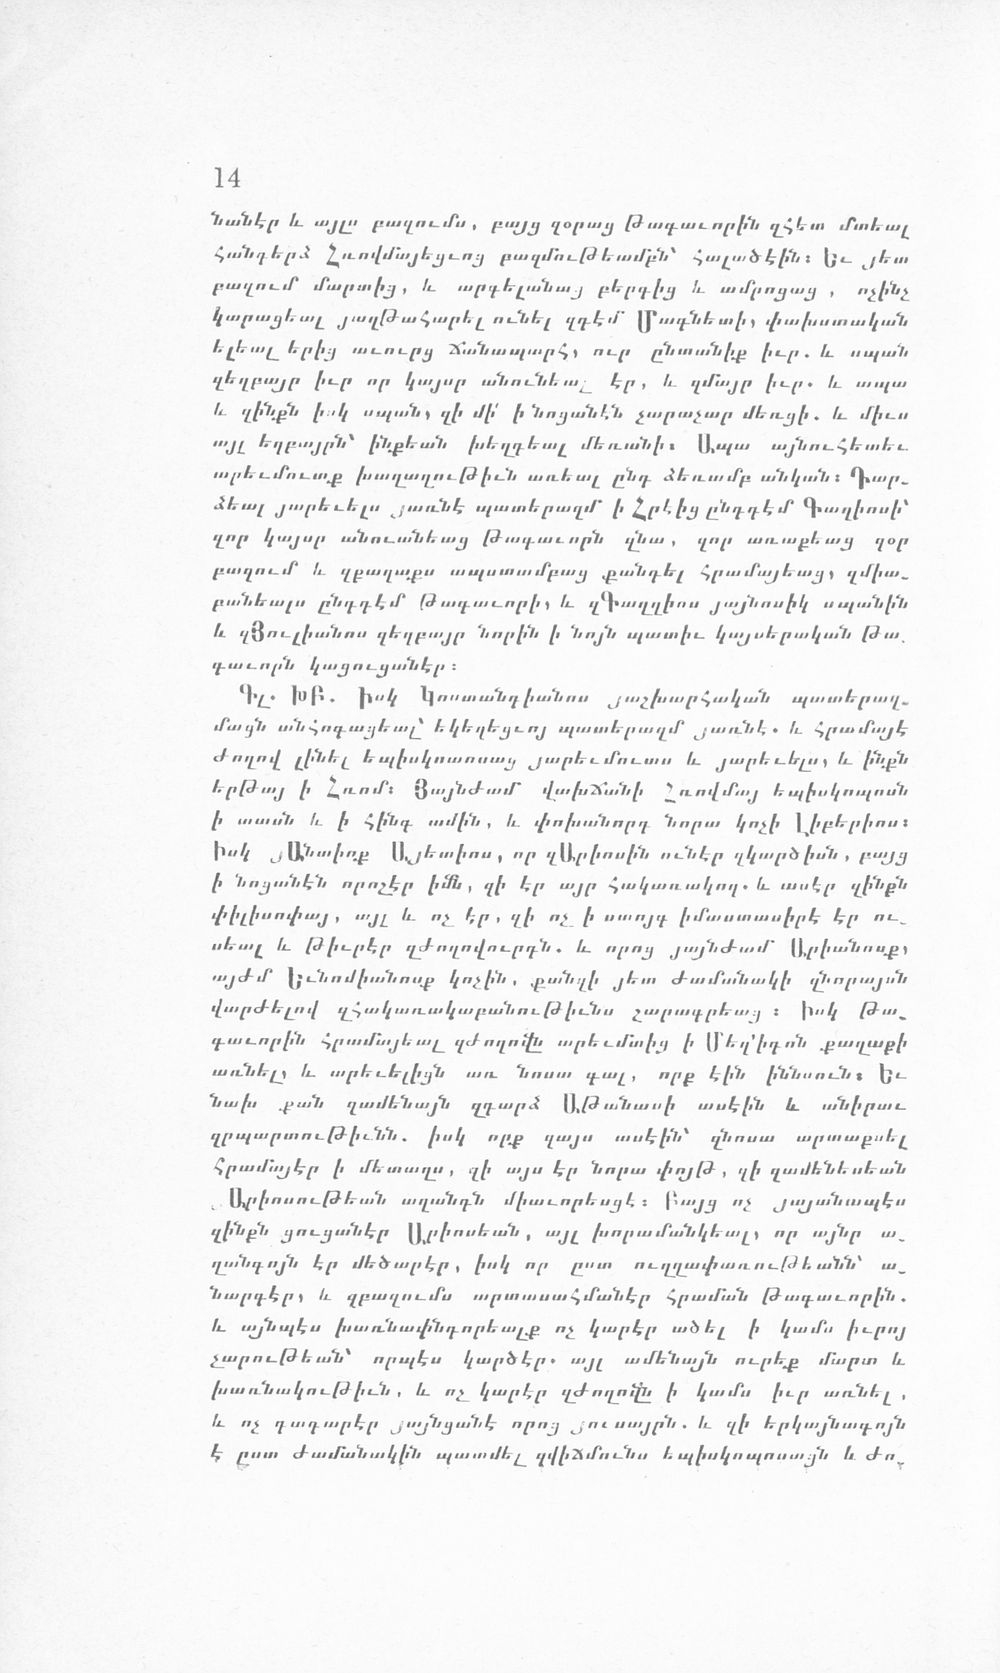 14
նանէր և այլս բազումս, բայց զօրաց Թագաւորին զհետ մտեալ
հանդերձ Հռովմայեցւոց բազմութեամբն՝ հալածէին։ Եւ յետ
բազում մարտից, և արգելանաց բերգից և ամրոցաց, ոչինչ
կարացեալ յաղթահարել ունել զդէմ Մագնետի, փախստական
ելեալ երից աւուրց ճանապարհ, ուր ընտանիք իւր. և սպան
զեղբայր իւր որ կայսր անունեալ էր, և զմայր իւր. և ապա
և զինքն իսկ սպան, զի մի՛ ի նոցանէն չարաչար մեռցի. և միւս
այլ եղբայրն՝ ինքեան խեղդեալ մեռանի։ Ապա այնուհետեւ
արեւմուտք խաղաղութիւն առեալ ընդ ձեռամբ անկան։ Դար֊
ձեալ յարեւելս յառնէ պատերազմ ի Հրէից ընդդէմ Գաղիոսի՝
զոր կայսր անուանեաց Թագաւորն զնա, զոր առաքեաց զօր
բազում և զքաղաքս ապստամբաց քանդել հրամայեաց, զմիա֊
բանեալս ընդդէմ Թագաւորի, և զԳաղղիոս յայնոսիկ սպանին
և զՅուլիանոս զեղբայր նորին ի նոյն պատիւ կայսերական Թա֊
գաւորն կացուցանէր։
Գլ. ԽԲ. Իսկ Կոստանդիանոս յաշխարհական պատերազ֊
մացն անհոգացեալ՝ եկեղեցւոյ պատերազմ յառնէ. և հրամայէ
ժողով լինել եպիսկոպոսաց յարեւմուտս և յարեւելս, և ինքն
երթայ ի Հռոմ։ Յայնժամ վախճանի Հռովմայ եպիսկոպոսն
ի տասն և ի հինգ ամին, և փոխանորդ նորա կոչի Լիբերիոս։
Իսկ յԱնտիոք Այետիոս, որ զԱրիոսին ուներ զկարծիսն, բայց
ի նոցանէն որոշէր իմն, զի էր այր հակառակող. և ասէր զինքն
փիլիսոփայ, այլ և ոչ էր, զի ոչ ի ստոյգ իմաստասիրէ էր ու֊
սեալ և թիւրէր զժողովուրդն. և որոց յայնժամ Արիանոսք,
այժմ Եւնոմիանոսք կոչին, քանզի յետ ժամանակի զնորայսն
վարժելով զհակառակաբանութիւնս շարագրեաց։ Իսկ Թա֊
գաւորին հրամայեալ զժողովն արեւմտից ի Մեդիդոն քաղաքի
առնել, և արեւելիցն առ նոսա գալ, որք էին իննսուն։ Եւ
նախ քան զամենայն զդարձ Աթանասի ասէին և անիրաւ
զրպարտութիւնն. իսկ որք զայս ասէին՝ զնոսա արտաքսել
հրամայէր ի մետաղս, զի այս էր նորա փոյթ, զի զամենեսեան
յԱրիոսութեան աղանդն միաւորեսցէ։ Բայց ոչ յայանապէս
զինքն ցուցանէր Արիոսեան, այլ խորամանկեալ, որ այնր ա֊
ղանդոյն էր մեծարէր, իսկ որ ըստ ուղղափառութեանն՝ ա֊
նարգէր, և զբազումս արտասահմանէր հրաման Թագաւորին.
և այնպէս խառնափնդորեալք ոչ կարէր ածել ի կամս իւրոյ
չարութեան՝ որպէս կարծէր. այլ ամենայն ուրեք մարտ և
խառնակութիւն, և ոչ կարէր զժողովն ի կամս իւր առնել,
և ոչ դադարէր յայնցանէ որոց յուսայրն. և զի երկայնագոյն
է ըստ ժամանակին պատմել զվիճմունս եպիսկոպոսացն և ժո֊